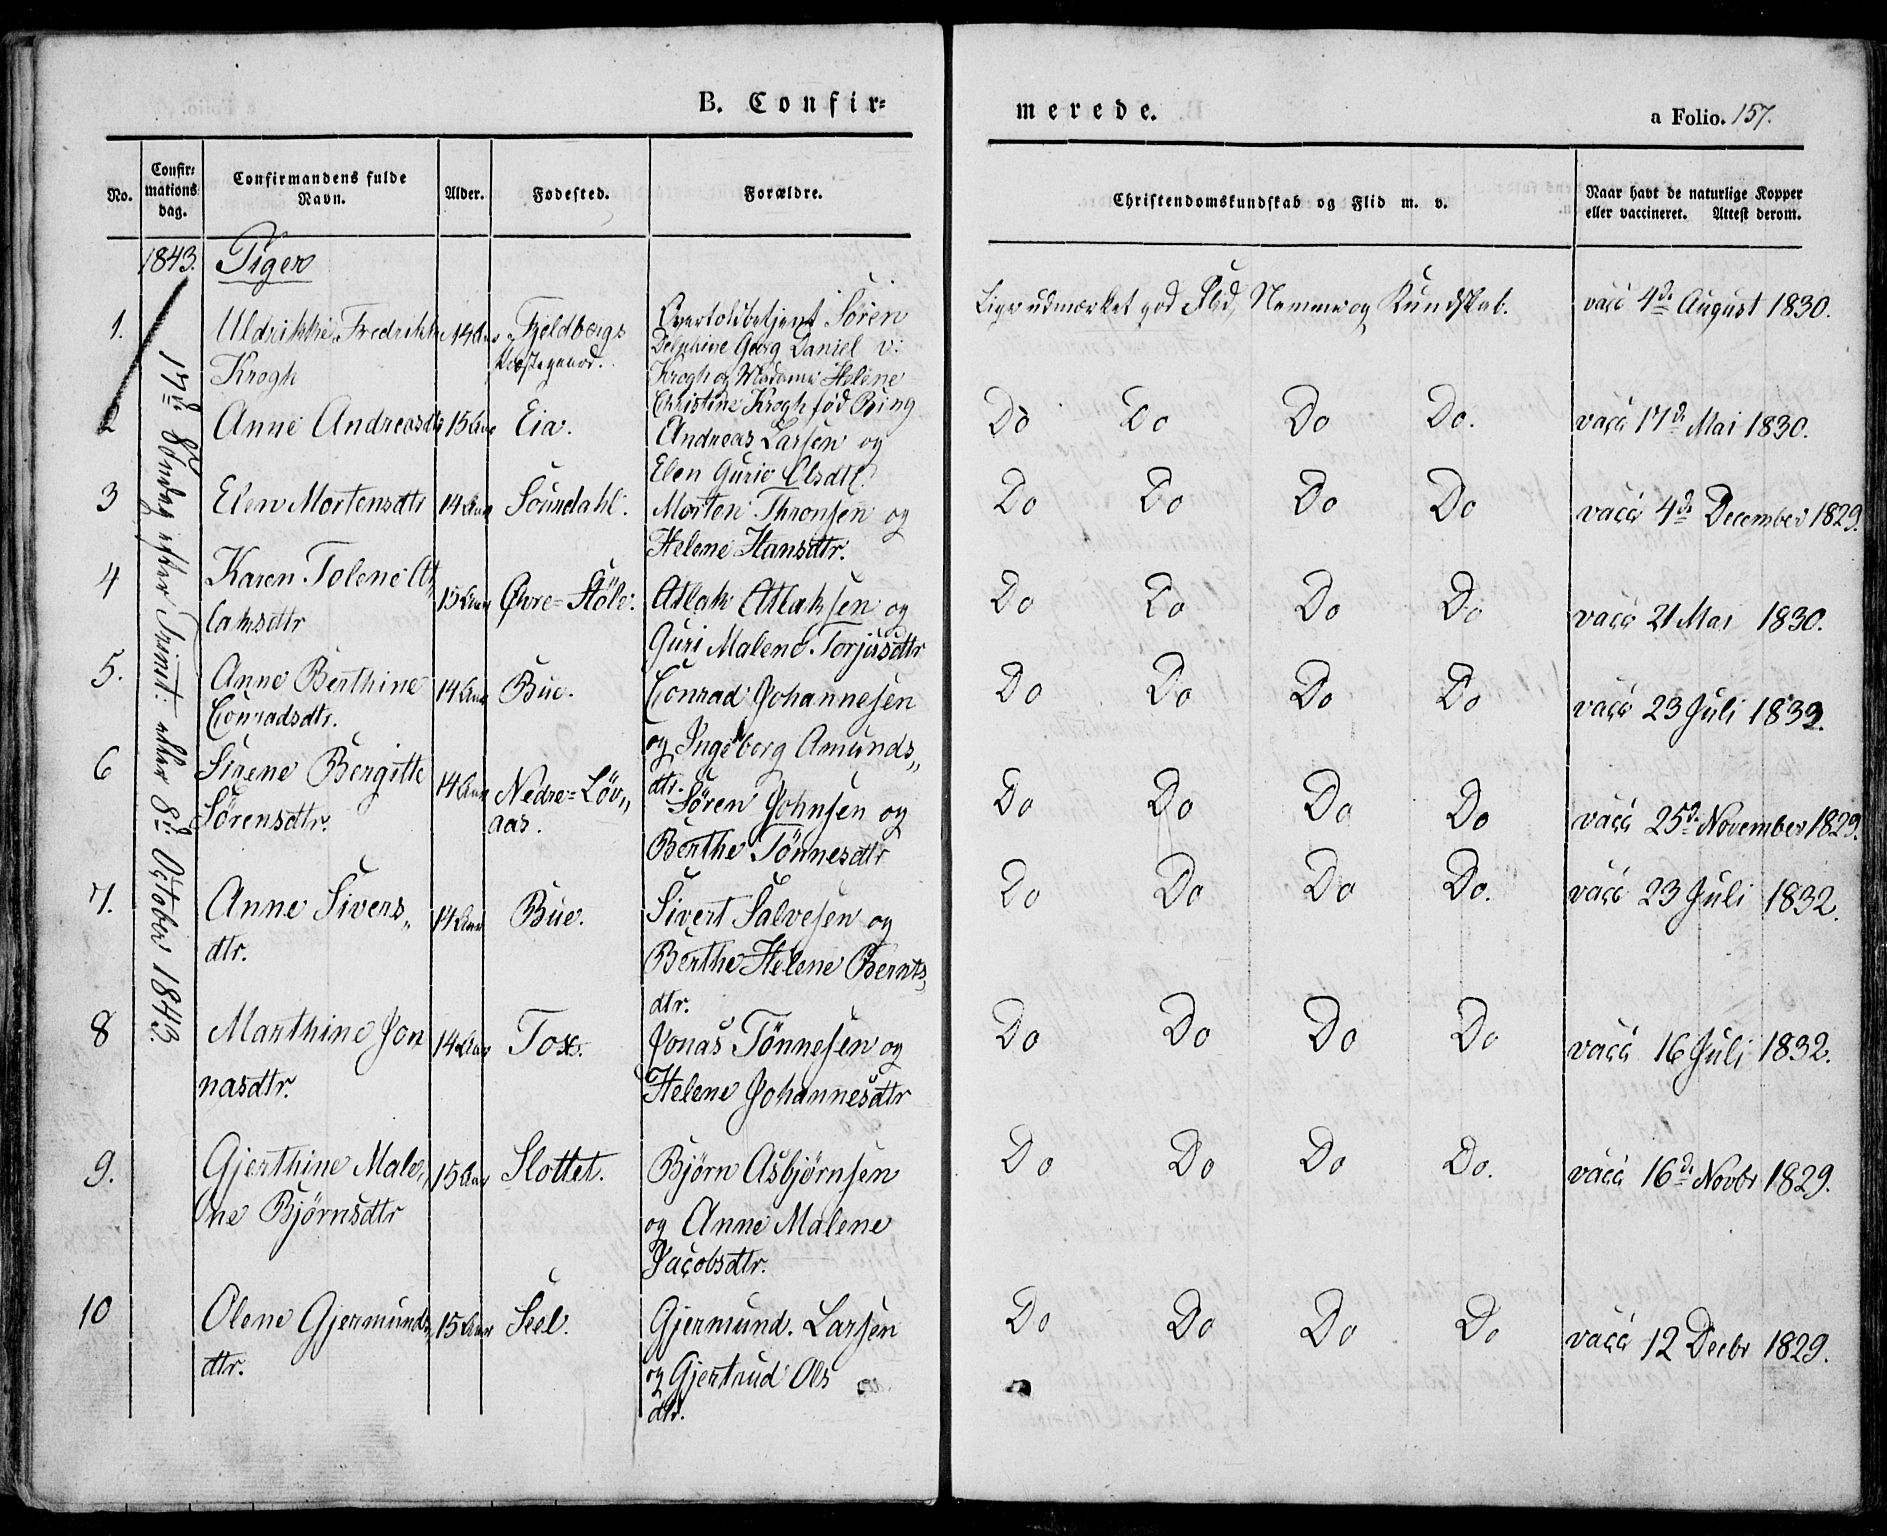 B. Confir-
merede.
a Folio. 157.
No.
Confir-
mations
dag.
Confirmandens fulde
Navn.
Alder.
Fødested.
Forældre.
Christendomskundskab og Flid m. v.
Naar havt de naturlige Kopper
eller vaccineret. Attest derom.
1843.
Piger
17de Søndag efter Trinit: eller 8de October 1843.
1.
Uldrikke Fredrikke
Krogh
14 Aar
Fjeldbergs
Præstegaard.
Overtoldbetjent Søren
Delphine Georg Daniel v:
Krogh og Madame Helene
Christine Krogh fød Bing
Lige udmærket god Flid, Nemme og Kundskab.
vacc 4de August 1830.
2
Anne Andreasdtr
15 Aar
Eia.
Andreas Larsen og
Elen Gurie Olsdtr.
Do Do Do Do.
vacc 17de Mai 1830.
3
Elen Mortensdtr
14 Aar
Soundahl.
Morten Thronsen og
Helene Hansdtr.
Do Do Do Do
vacc 4de December 1829.
4
Karen Tolene At
laksdtr
15 Aar
Øvre=Støle.
Atlak Atlaksen og
Guri Malene Torjusdtr
Do Do Do Do
vacc 21 Mai 1830.
5.
Anne Berthine
Conradsdtr.
14 Aar
Bue.
Conrad Johannesen
og Ingeborg Amunds„
dtr.
Do Do Do Do
vacc 23 Juli 1832.
6
Sirene Bergitte
Sørensdtr.
14 Aar
Nedre=Löv„
aas.
Søren Johnsen og
Berthe Tönnesdtr
Do Do Do Do
vacc 25de November 1829.
7.
Anne Sivers„
dtr.
14 Aar
Bue.
Sivert Salvesen og
Berthe Helene Bernts„
dtr.
Do Do Do Do.
vacc 23 Juli 1832.
8
Marthine Jon
nasdtr.
14 Aar
Toxe.
Jonas Tönnesen og
Helene Johannesdtr
Do Do Do Do
vacc 16 Juli 1832.
9.
Gjerthine Male„
ne Bjørnsdtr
15 Aar
Slottet.
Bjørn Asbjørnsen
og Anne Malene
Jacobsdtr.
Do Do Do Do.
vacc 16de Novbr 1829.
10
Olene Gjermunds„
dtr.
15 Aar
Seel.
Gjermund. Larsen
og Gjertrud Ols
dtr.
Do Do Do Do
vacc 12 Decbr 1829.